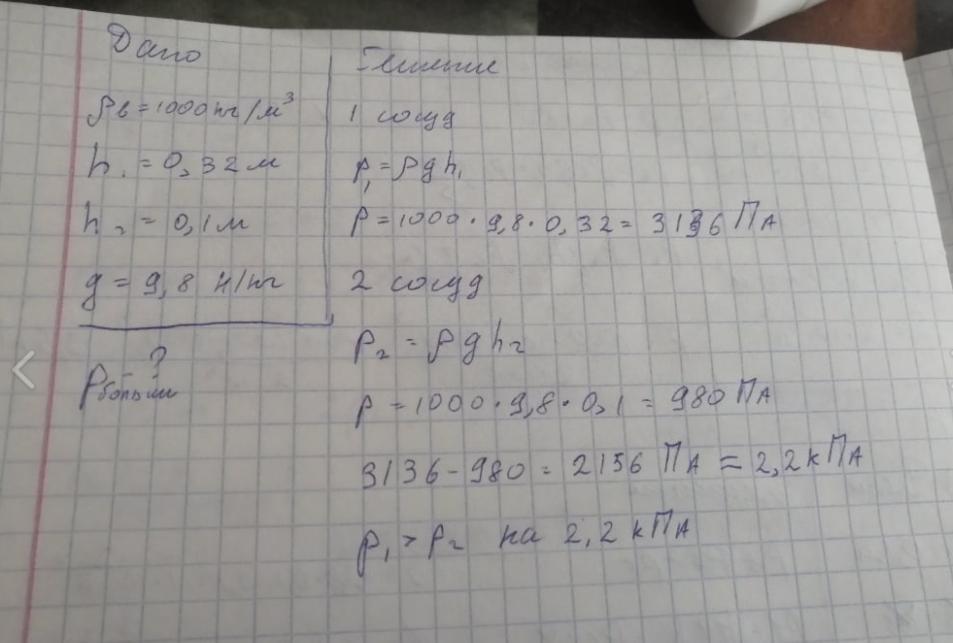 Дано
ρв = 1000 кг/м³
h₁ = 0,32 м
h₂ = 0,1 м
g = 9,8 Н/кг
Pбольш ?
Решение
1 сосуд
p₁ = ρgh₁
p = 1000 · 9,8 · 0,32 = 3136 ПА
2 сосуд
p₂ = ρgh₂
p = 1000 · 9,8 · 0,1 = 980 ПА
3136 - 980 = 2156 ПА = 2,2 кПА
p₁ > p₂ на 2,2 кПА